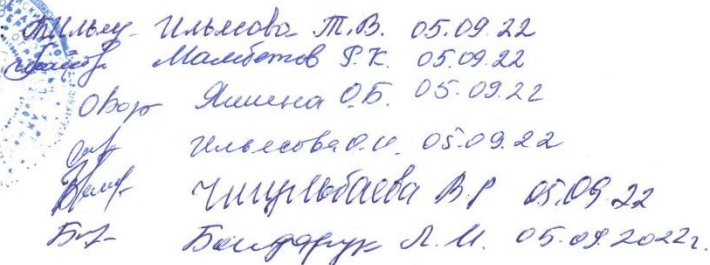 Ильясова Т.В. 05.09.22
Мамбетов Р.К. 05.09.22
Яшина О.Б. 05.09.22
Ильясова О.И. 05.09.22
В.Р 05.09.22
Бондарук Л.М. 05.09.2022г.